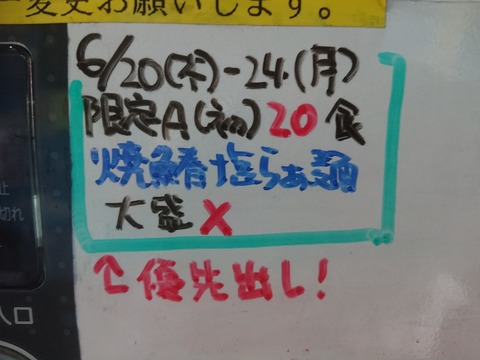 一変更お願いします。
6/20(木)-24.(月)
限定A(初)20食
焼鯖塩らぁ麺
大盛X
↑優先出し!
切れ
入口